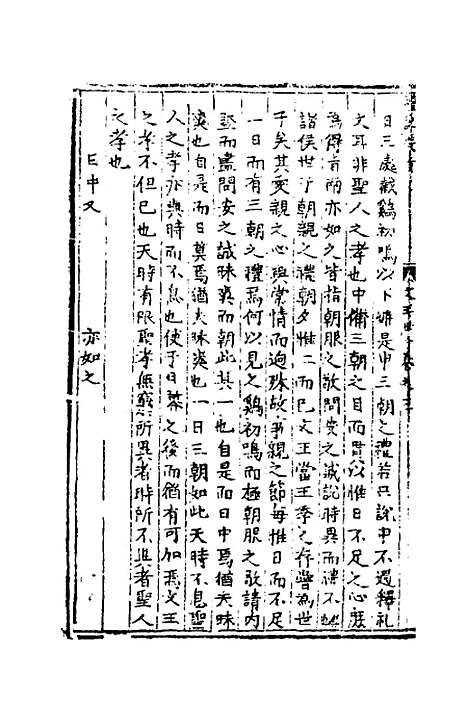 日三處截鷄初鳴以下雖是申三朝之禮若只說中不過釋礼
文耳非聖人之孝也中備三朝之目而貫以惟日不足之心庶
為得旨兩亦如之皆指朝服之敬問安之誠說時異而禮不
諸侯世子朝親之禮朝夕惟二而已文王當王季之存嘗為世
子矣其愛親之心與常情而逈殊故事親之節每惟日而不足
一日而有三朝之禮焉何以見之鷄初鳴而極朝服之敬請內
豎而盡問安之誠昧爽而朝此其一也自是而日中焉猶夫昧
爽也自是而日莫焉猶夫昧爽也一日三朝如此天時不息聖
人之孝亦與時而不息也使于日暮之後而猶有可加焉文王
之孝不但已也天時有限聖孝無窮所異者時所不異者聖人
之孝也
日中又 亦如之